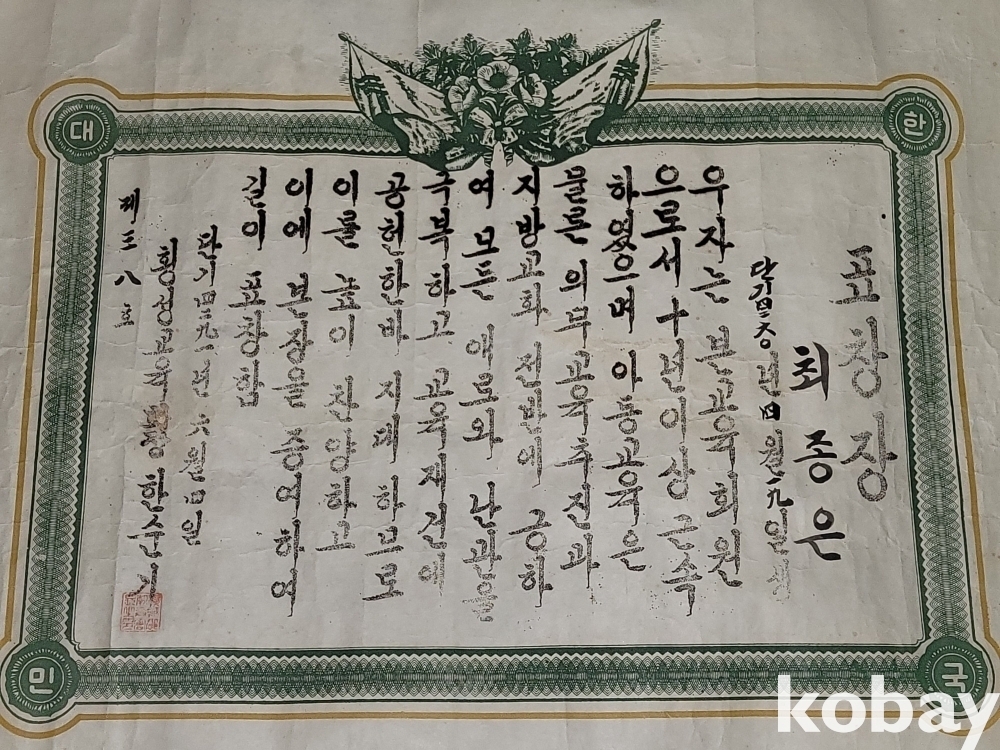 대
한
민
국
표창장
최종은
년 四월 一九일생
우자는 본교육회원
으로서 十년이상 근속
하였으며 아동교육은
물론 의무교육추진과
지방교화 전반에 긍하
여 모든 애로와 난관을
극복하고 교육재건에
공헌한바 지대 하므로
이를 높이 찬양하고
이에 본장을 증여하여
길이 표창함
단기四二九一년 六월 四일
횡성교육 한순기
제三八호
kobay